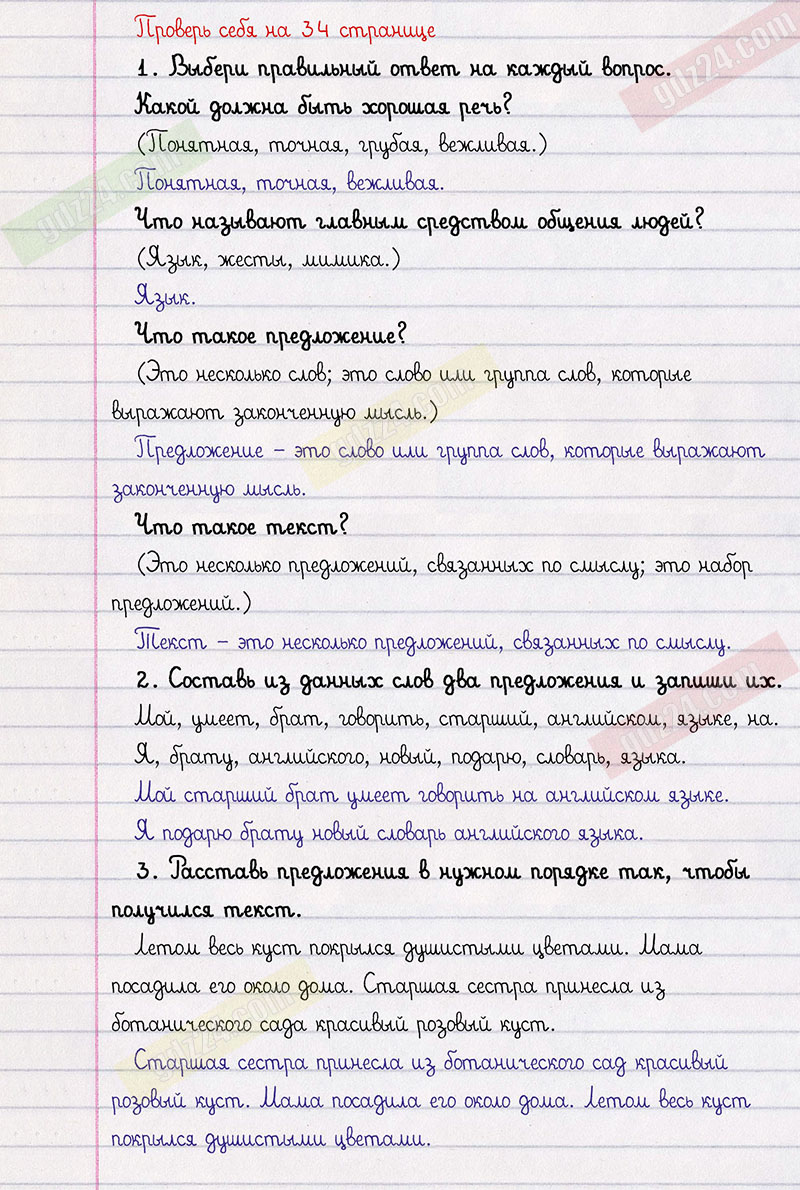 Проверь себя на 34 странице
1. Выбери правильный ответ на каждый вопрос.
Какой должна быть хорошая речь?
(Понятная, точная, грубая, вежливая.)
Понятная, точная, вежливая.
Что называют главным средством общения людей?
(Язык, жесты, мимика.)
Язык.
Что такое предложение?
(Это несколько слов; это слово или группа слов, которые
выражают законченную мысль.)
Предложение – это слово или группа слов, которые выражают
законченную мысль.
Что такое текст?
(Это несколько предложений, связанных по смыслу; это набор
предложений.)
Текст – это несколько предложений, связанных по смыслу.
2. Составь из данных слов два предложения и запиши их.
Мой, умеет, брат, говорить, старший, английском, языке, на.
Я, брату, английского, новый, подарю, словарь, языка.
Мой старший брат умеет говорить на английском языке.
Я подарю брату новый словарь английского языка.
3. Расставь предложения в нужном порядке так, чтобы
получился текст.
Летом весь куст покрылся душистыми цветами. Мама
посадила его около дома. Старшая сестра принесла из
ботанического сада красивый розовый куст.
Старшая сестра принесла из ботанического сад красивый
розовый куст. Мама посадила его около дома. Летом весь куст
покрылся душистыми цветами.
gdz24.com
gdz24.com
gdz24.com
gdz24.com
gdz24.com